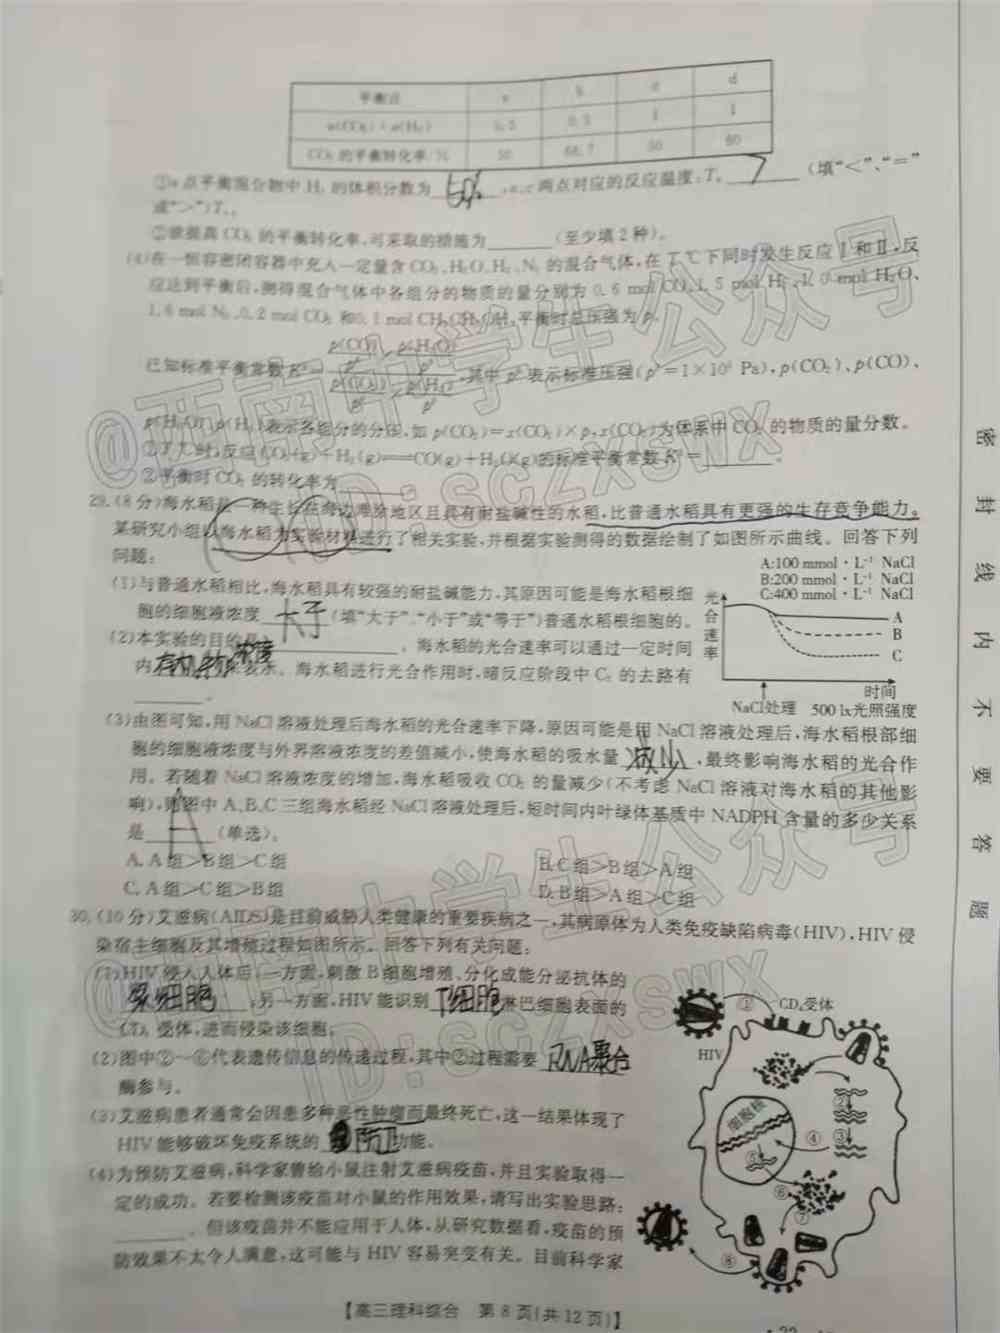 平衡点 a b c d
n(CO₂)∶n(H₂) 0.5 0.5 1 1
CO₂的平衡转化率/% 50 66.7 50 60
①a点平衡混合物中H₂的体积分数为 50% ,a、c两点对应的反应温度:Tₐ > (填“<”、“=”
或“>”)T꜀。
②欲提高CO₂的平衡转化率,可采取的措施为______(至少填2种)。
(4)在一恒容密闭容器中充入一定量含CO₂、H₂O、H₂、N₂的混合气体,在T℃下同时发生反应Ⅰ和Ⅱ,反
应达到平衡后,测得混合气体中各组分的物质的量分别为0.6 mol CO、1.5 mol H₂、1.0 mol H₂O、
1.6 mol N₂、0.2 mol CO₂和0.1 mol CH₃CH₂OH,平衡时总压强为p。
p(CO) p(H₂O)
已知标准平衡常数 ,其中 表示标准压强( =1×10⁵ Pa),p(CO₂)、p(CO)、
p(H₂O)、p(H₂)表示各组分的分压,如p(CO₂)=x(CO₂)×p,x(CO₂)为体系中CO₂的物质的量分数。
①T℃时,反应CO₂(g)+H₂(g)══CO(g)+H₂O(g)的标准平衡常数 =______。
②平衡时CO₂的转化率为______。
29.(8分)海水稻是一种生长在海边滩涂地区且具有耐盐碱性的水稻,比普通水稻具有更强的生存竞争能力。
某研究小组以海水稻为实验材料进行了相关实验,并根据实验测得的数据绘制了如图所示曲线。回答下列
问题:
(1)与普通水稻相比,海水稻具有较强的耐盐碱能力,其原因可能是海水稻根细
胞的细胞液浓度 大于 (填“大于”、“小于”或“等于”)普通水稻根细胞的。
(2)本实验的目的是______。海水稻的光合速率可以通过一定时间
内 有机物 浓度 来表示。海水稻进行光合作用时,暗反应阶段中C₅的去路有
______。
A:100 mmol·L⁻¹ NaCl
B:200 mmol·L⁻¹ NaCl
C:400 mmol·L⁻¹ NaCl
光合速率
A
B
C
时间
NaCl处理 500 lx光照强度
(3)由图可知,用NaCl溶液处理后海水稻的光合速率下降,原因可能是用NaCl溶液处理后,海水稻根部细
胞的细胞液浓度与外界溶液浓度的差值减小,使海水稻的吸水量 减少 ,最终影响海水稻的光合作
用。若随着NaCl溶液浓度的增加,海水稻吸收CO₂的量减少(不考虑NaCl溶液对海水稻的其他影
响),则图中A、B、C三组海水稻经NaCl溶液处理后,短时间内叶绿体基质中NADPH含量的多少关系
是 A (单选)。
A. A组>B组>C组 B. C组>B组>A组
C. A组>C组>B组 D. B组>A组>C组
30.(10分)艾滋病(AIDS)是目前威胁人类健康的重要疾病之一,其病原体为人类免疫缺陷病毒(HIV),HIV侵
染宿主细胞及其增殖过程如图所示。回答下列有关问题:
(1)HIV侵入人体后,一方面,刺激B细胞增殖、分化成能分泌抗体的
浆细胞 ;另一方面,HIV能识别 T细胞 淋巴细胞表面的
CD₄受体,进而侵染该细胞;
(2)图中①~⑥代表遗传信息的传递过程,其中②过程需要 RNA聚合
酶参与。
(3)艾滋病患者通常会因患多种恶性肿瘤而最终死亡,这一结果体现了
HIV能够破坏免疫系统的 防卫 功能。
(4)为预防艾滋病,科学家曾给小鼠注射艾滋病疫苗,并且实验取得一
定的成功。若要检测该疫苗对小鼠的作用效果,请写出实验思路:
______。但该疫苗并不能应用于人体,从研究数据看,疫苗的预
防效果不太令人满意,这可能与HIV容易突变有关。目前科学家
① CD₄受体
HIV
细胞核
②
③
④
⑤
⑥
⑦
⑧
【高三理科综合 第8页(共12页)】
密封线内不要答题
@西南中学生公众号
ID:sczxswx
@西南中学生公众号
ID:sczxswx